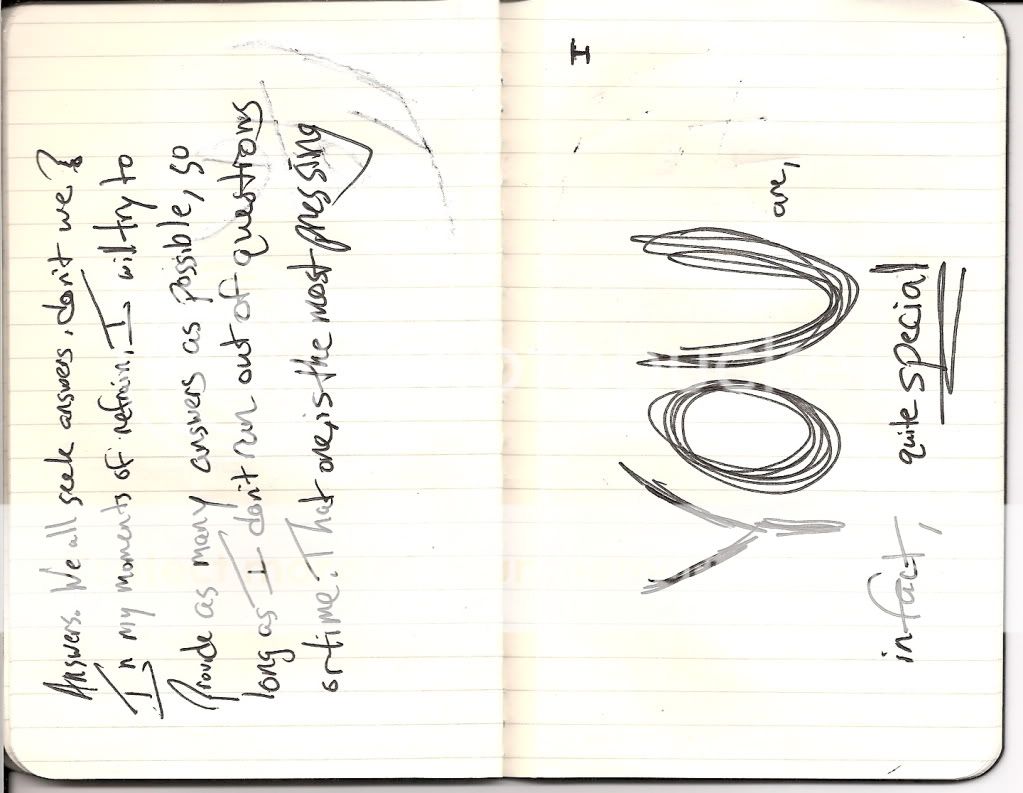 Answers. We all seek answers, don't we?
In my moments of refrain, I will try to
Provide as many answers as possible, so
long as I don't run out of questions
or time. That one, is the most pressing
I
YOU are,
in fact, quite special